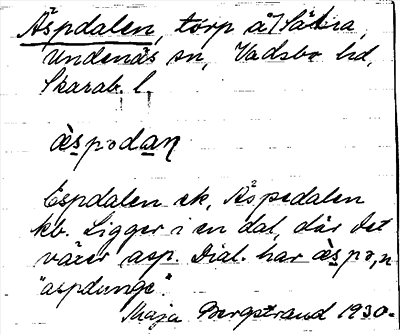 Äspdalen, torp å Sätra,
Undenäs sn, Vadsbo hd,
Skarab. l.
æ̀spədan̥
Espdalen ek, Äspedalen
kb. Ligger i en dal, där det
växer asp. Dial. har æ̀spə,n
"aspdunge".
Maja Bergstrand 1930.